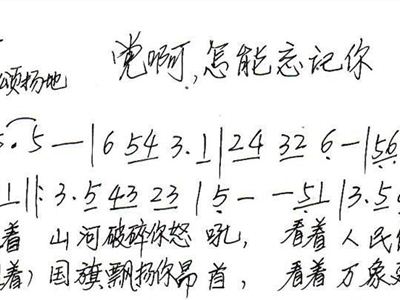 党啊,怎能忘记你
颂扬地
5.5—|6 54 3.1|24 32 6—|56
1‖:3.5 43 23|5— —51|3.5
着 山河破碎你怒吼, 看着人民
着) 国旗飘扬你昂首, 看着万象